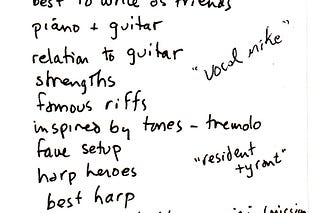 best to write as friends
piano + guitar
relation to guitar
"vocal mike"
strengths
famous riffs
inspired by tones - tremolo
fave setup
"resident tyrant"
harp heroes
best harp